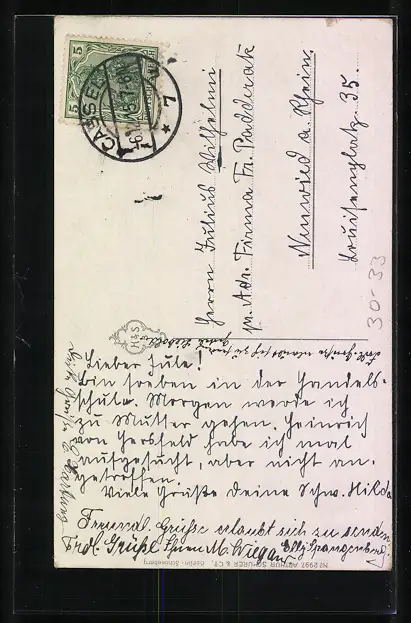 5
5
CASSEL
7
Herrn Julius Wilhelmi
pr. Adr. Firma Fr. Padderak
Neuwied a. Rhein.
Louisenplatz 35.
30-33
H&S
Lieber Jule!
Bin soeben in der Handels-
schule. Morgen werde ich
zu Mutter gehen. Heinrich
von Hersfeld habe ich mal
aufgesucht, aber nicht an-
getroffen.
Viele Grüße deine Schw. Hilda
Freundl. Grüße erlaubt sich zu senden
Elly Spangenberg
Frdl. Grüße Ihnen M. Wiegand
Nº 2997 ARTHUR SCHÜRER & Co., Berlin-Schöneberg